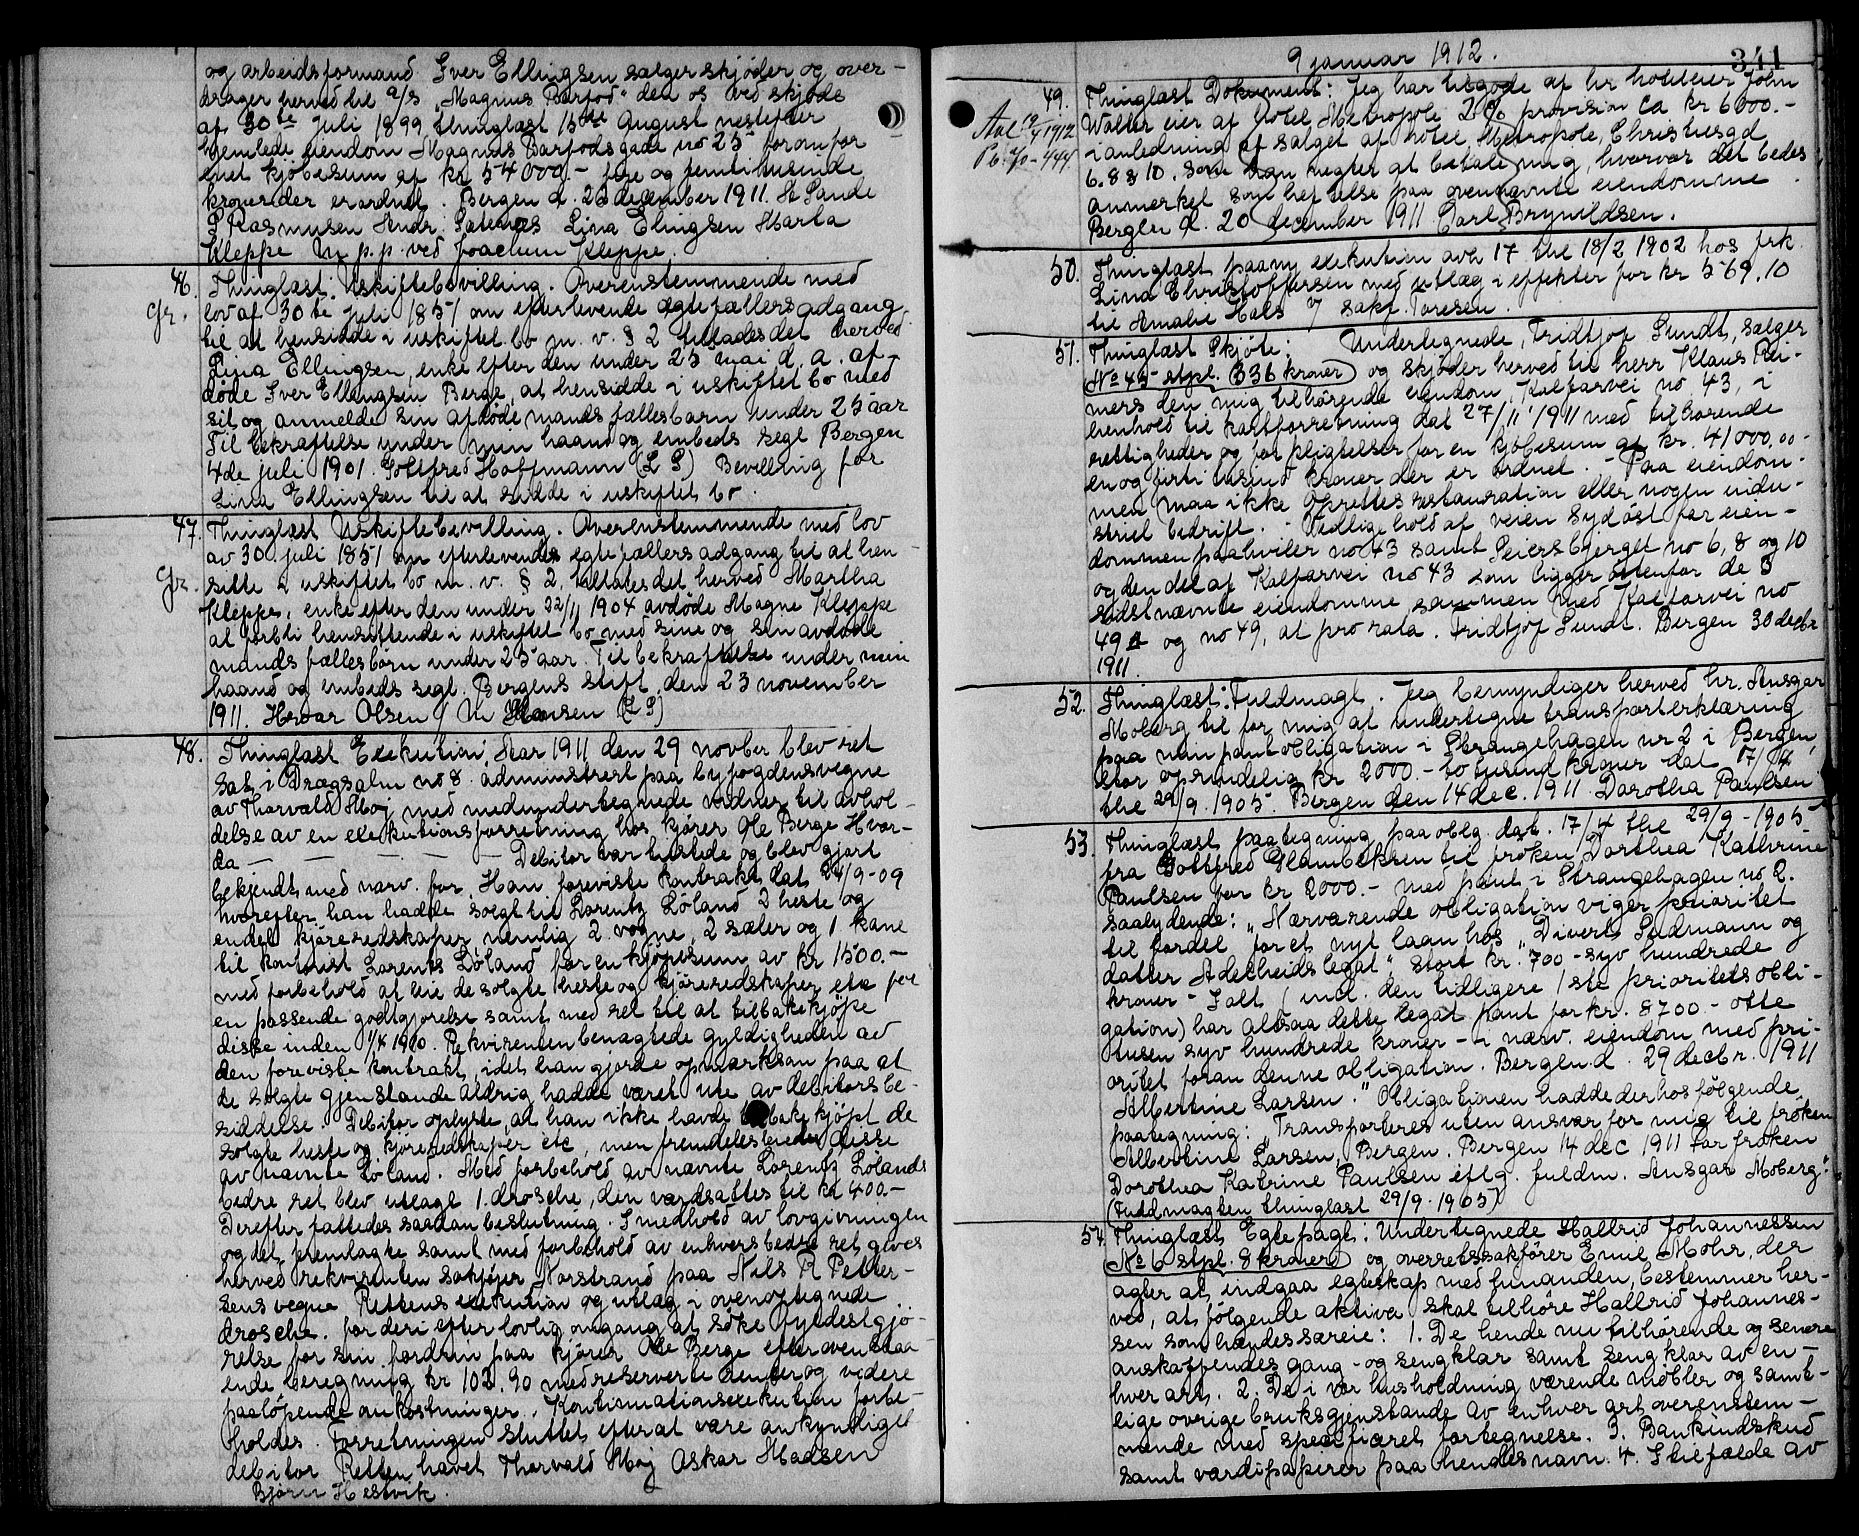 og arbeidsformand Iver Ellingsen sælger skjøder og over-
drager herved til a/s „Magnus Barfod“ den os ved skjøde
af 30te Juli 1899, thinglæst 15de August nestefter
hjemlede eiendom Magnus Barfodsgade no 25 for omfor
enet kjøbesum af kr 54000.- fire og femti tusinde
kroner der er ordnet. Bergen d. 22 december 1911. A Sande
P Rasmusen Hendr. Lina Elingsen Marta
Kleppe M p.p. ved Joachim Kleppe.
46. Thinglæst Uskiftebevilling. Overenstemmende med
gr. lov af 30te Juli 1851 om efterlevende ægtefællers adgang
til at hensidde i uskiftet bo m. v. § 2 tillades det herved
Lina Ellingsen, enke efter den under 25 mai d. a. af-
døde Iver Ellingsen Berge, at hensidde i uskiftet bo med
sit og anmeldte sin afdøde mands fællesbarn under 25 aar
Til bekræftelse under min haand og embeds segl Bergen
4de juli 1901. Gottfred Hoffmann (L S) Bevilling for
Lina Ellingsen til at sidde i uskiftet bo.
47. Thinglæst Uskiftebevilling. Overenstemmende med lov
av 30. juli 1851 om efterlevendes egtefællers adgang til at hen-
gr. sitte i uskiftet bo m. v. § 2, tillates det herved Martha
Kleppe, enke efter den under 22/11 1904 avdøde Magne Kleppe
at forbli hensittende i uskiftet bo med sine og sin avdøde
mands fællesbørn under 25 aar. Til bekræftelse under min
haand og embeds segl. Bergens stift, den 23 november
1911. Hroar Olsen / M Hansen (L S)
48. Thinglæst Exekution; Aar 1911 den 29 novber blev ret
sat i Drægsalm no 8. administrert paa byfogdens vegne
av Thorvald Høj med medundertegnede vidner til avhol-
delse av en exekutionsforretning hos kjører Ole Berge Hvor-
da — — — — — Debitor var tilstede og blev gjort
bekjendt med nærv. for. Han foreviste kontrakt dat 24/9-09
hvorefter han hadde solgt til Lorentz Löland 2 heste og
endel kjøreredskaper nemlig 2 vogne, 2 sæler og 1 kane
til kontorist Lorentz Löland for en kjøpesum av kr 1500.-
med forbehold at leie de solgte heste og kjøreredskaper etc for
en passende godtgjørelse samt med ret til at tilbakekjøpe
disse inden 1/4 1910. Rekvirenten benægtede gyldigheden av
den foreviste kontrakt, idet han gjorde opmerksom paa at
de solgte gjenstande aldrig hadde været ute av debitors be-
siddelse. Debitor oplyste, at han ikke havde tilbakekjøpt de
solgte heste og kjøreredskaper etc, men fremdeles leiede disse
av nævnte Löland. Med forbehold av nævnte Lorentz Lölands
bedre ret blev utlagt 1. drosche, den værdsattes til kr 400.-
Derefter fattedes saadan beslutning. I medhold av lovgivningen
og det fremlagte samt med forbehold av enhvers bedre ret gives
herved rekvirenten sakfører Norstrand paa Nils R Petter-
sens vegne Rettens exekution og utlæg i ovenoptegnede
drosche. for deri efter lovlig omgang at søke fyldestgjø-
relse for sin fordrin paa kjører Ole Berge efter ovenstaa-
ende beregning kr 102.90 med reserverte renter og videre
paaløpende omkostninger. Kontinuationsexekution forbe-
holdes. Forretningen sluttet efterat være ankyndiget
debitor Retten hævet Thorvald Høj Oskar Madsen
Bjørn Hestvik.
9 januar 1912.
341
49. Thinglæst Dokument: Jeg har tilgode af hr hoteleier John
Avl 12/4 1912 Walter eier af Hotel Metropole 2% provision ca kr 6000.-
P b. 70-444 i anledning af salget af hotel Metropole, Christiesgd
6.8 & 10. som han negter at betale mig, hvorvor det bedes
anmerket som heftelse paa ovennævnte eiendomme
Bergen d. 20 december 1911 Carl Brynildsen.
50. Thinglæst paany exekution avh 17 thl 18/2 1902 hos frk.
Lina Christoffersen med utlæg i effekter for kr 569.10
til Amalie Hals v/ sakf. Toresen.
51. Thinglæst Skjøte; Undertegnede, Fridtjof Sundt, sælger
No 45 stpl. 336 kroner og skjøder herved til herr Klaus Rei-
mers den mig tilhørende eiendom, Kalfarvei no 43, i
henhold til kartforretning dat 27/11 1911 med tilhørende
rettigheder og forpligtelser for en kjøbesum af kr. 41000,00-
en og firti tusind kroner der er ordnet. - Paa eiendom-
men maa ikke oprettes restauration eller nogen indu-
striel bedrift. - Vedligehold af veien sydøst for eien-
dommen paahviler no 43 samt Leiersbjerget no 6, 8 og 10
og den del af Kalfarvei no 43 som ligger ovenfor de 3
sidstnævnte eiendomme sammen med Kalfarvei no
49 a og no 49, at pro rata. Fridtjof Sundt. Bergen 30 decbr
1911.
52. Thinglæst: Fuldmagt. Jeg bemyndiger herved hr. Ansgar
Moberg til for mig at undertegne transporterklæring
paa min pantobligation i Strangehagen nr 2 i Bergen,
stor oprindelig kr 2000.- to tusind kroner dat 17/4
thl 29/9. 1905. Bergen den 14 dec. 1911. Dorothea Paulsen
53. Thinglæst paategning paa oblg. dat. 17/4 thl 29/9-1905
fra Gottfred Glambeksen til frøken Dorthea Kathrine
Paulsen for kr 2000.- med pant i Strangehagen no 2.
saalydende: „Nærværende obligation viger prioritet
til fordel for et nyt laan hos „Divert Sudmann og
datter Adelheids legat“ stort kr. 700 - syv hundrede
kroner - Ialt (incl. den tidligere 1ste prioritets obli-
gation) har altsaa dette legat pant for kr. 8700 - otte
tusen syv hundrede kroner - i nærv. eiendom med pri-
oritet foran denne obligation. Bergen d. 29 decbr. 1911
Albertine Larsen.“ Obligationen hadde derhos følgende
paategning: „Transporteres uten ansvar for mig til frøken
Albertine Larsen, Bergen. Bergen 14 dec 1911 For frøken
Dorothea Katrine Paulsen eflg. fuldm. Ansgar Moberg“.
(Fuldmagten thinglæst 29/9-1905)
54. Thinglæst Egtepagt: Undertegnede Hallrid Johannessen
No 6 stpl. 8 kroner og overretssakfører Emil Mohr, der
agter at indgaa egteskap med hinanden, bestemmer her-
ved, at følgende aktiva skal tilhøre Hallrid Johannes-
sen som hendes særeie: 1. De hende nu tilhørende og senere
anskaffendes gang - og sengklær samt sengklær av en-
hver art. 2. De i vor husholdning værende møbler og samt-
lige øvrige bruksgjenstande av enhver art overenstem-
mende med specificeret fortegnelse. 3. Bankindskud
samt værdipapirer paa hendes navn. 4. I tilfælde av